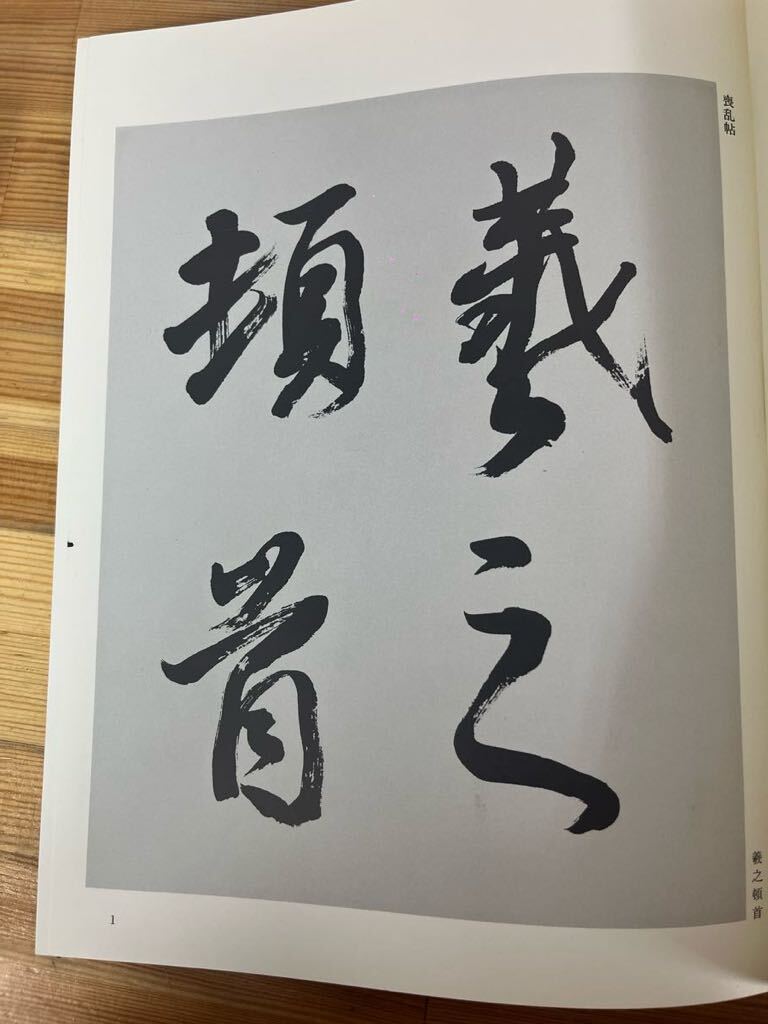 喪乱帖
羲之
頓首
羲之頓首
1